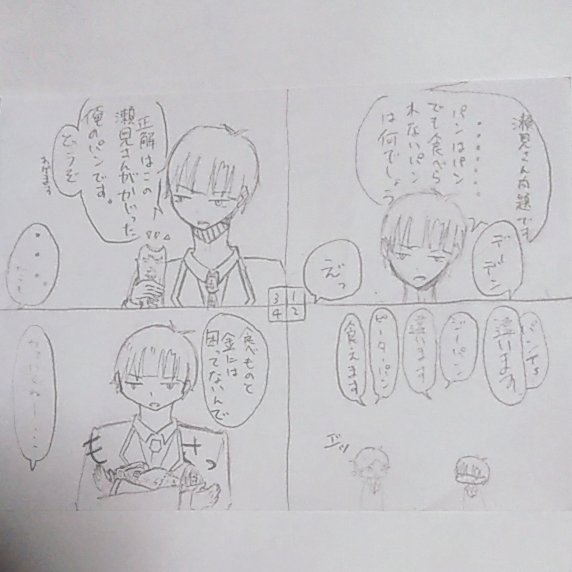 デーデン
瀬見さん問題です
・・・・・・・・
パンはパン
でも食べら
れないパン
は何でしょう
えっ
パンティ
違います
ジーパン
違います
ピーターパン
食えます
ジッ
正解はこの
瀬見さんがかじった
俺のパンです。
どうぞ
あげます
・・・・
食べものと
金には
困ってないんで
もさっ
3 1
4 2